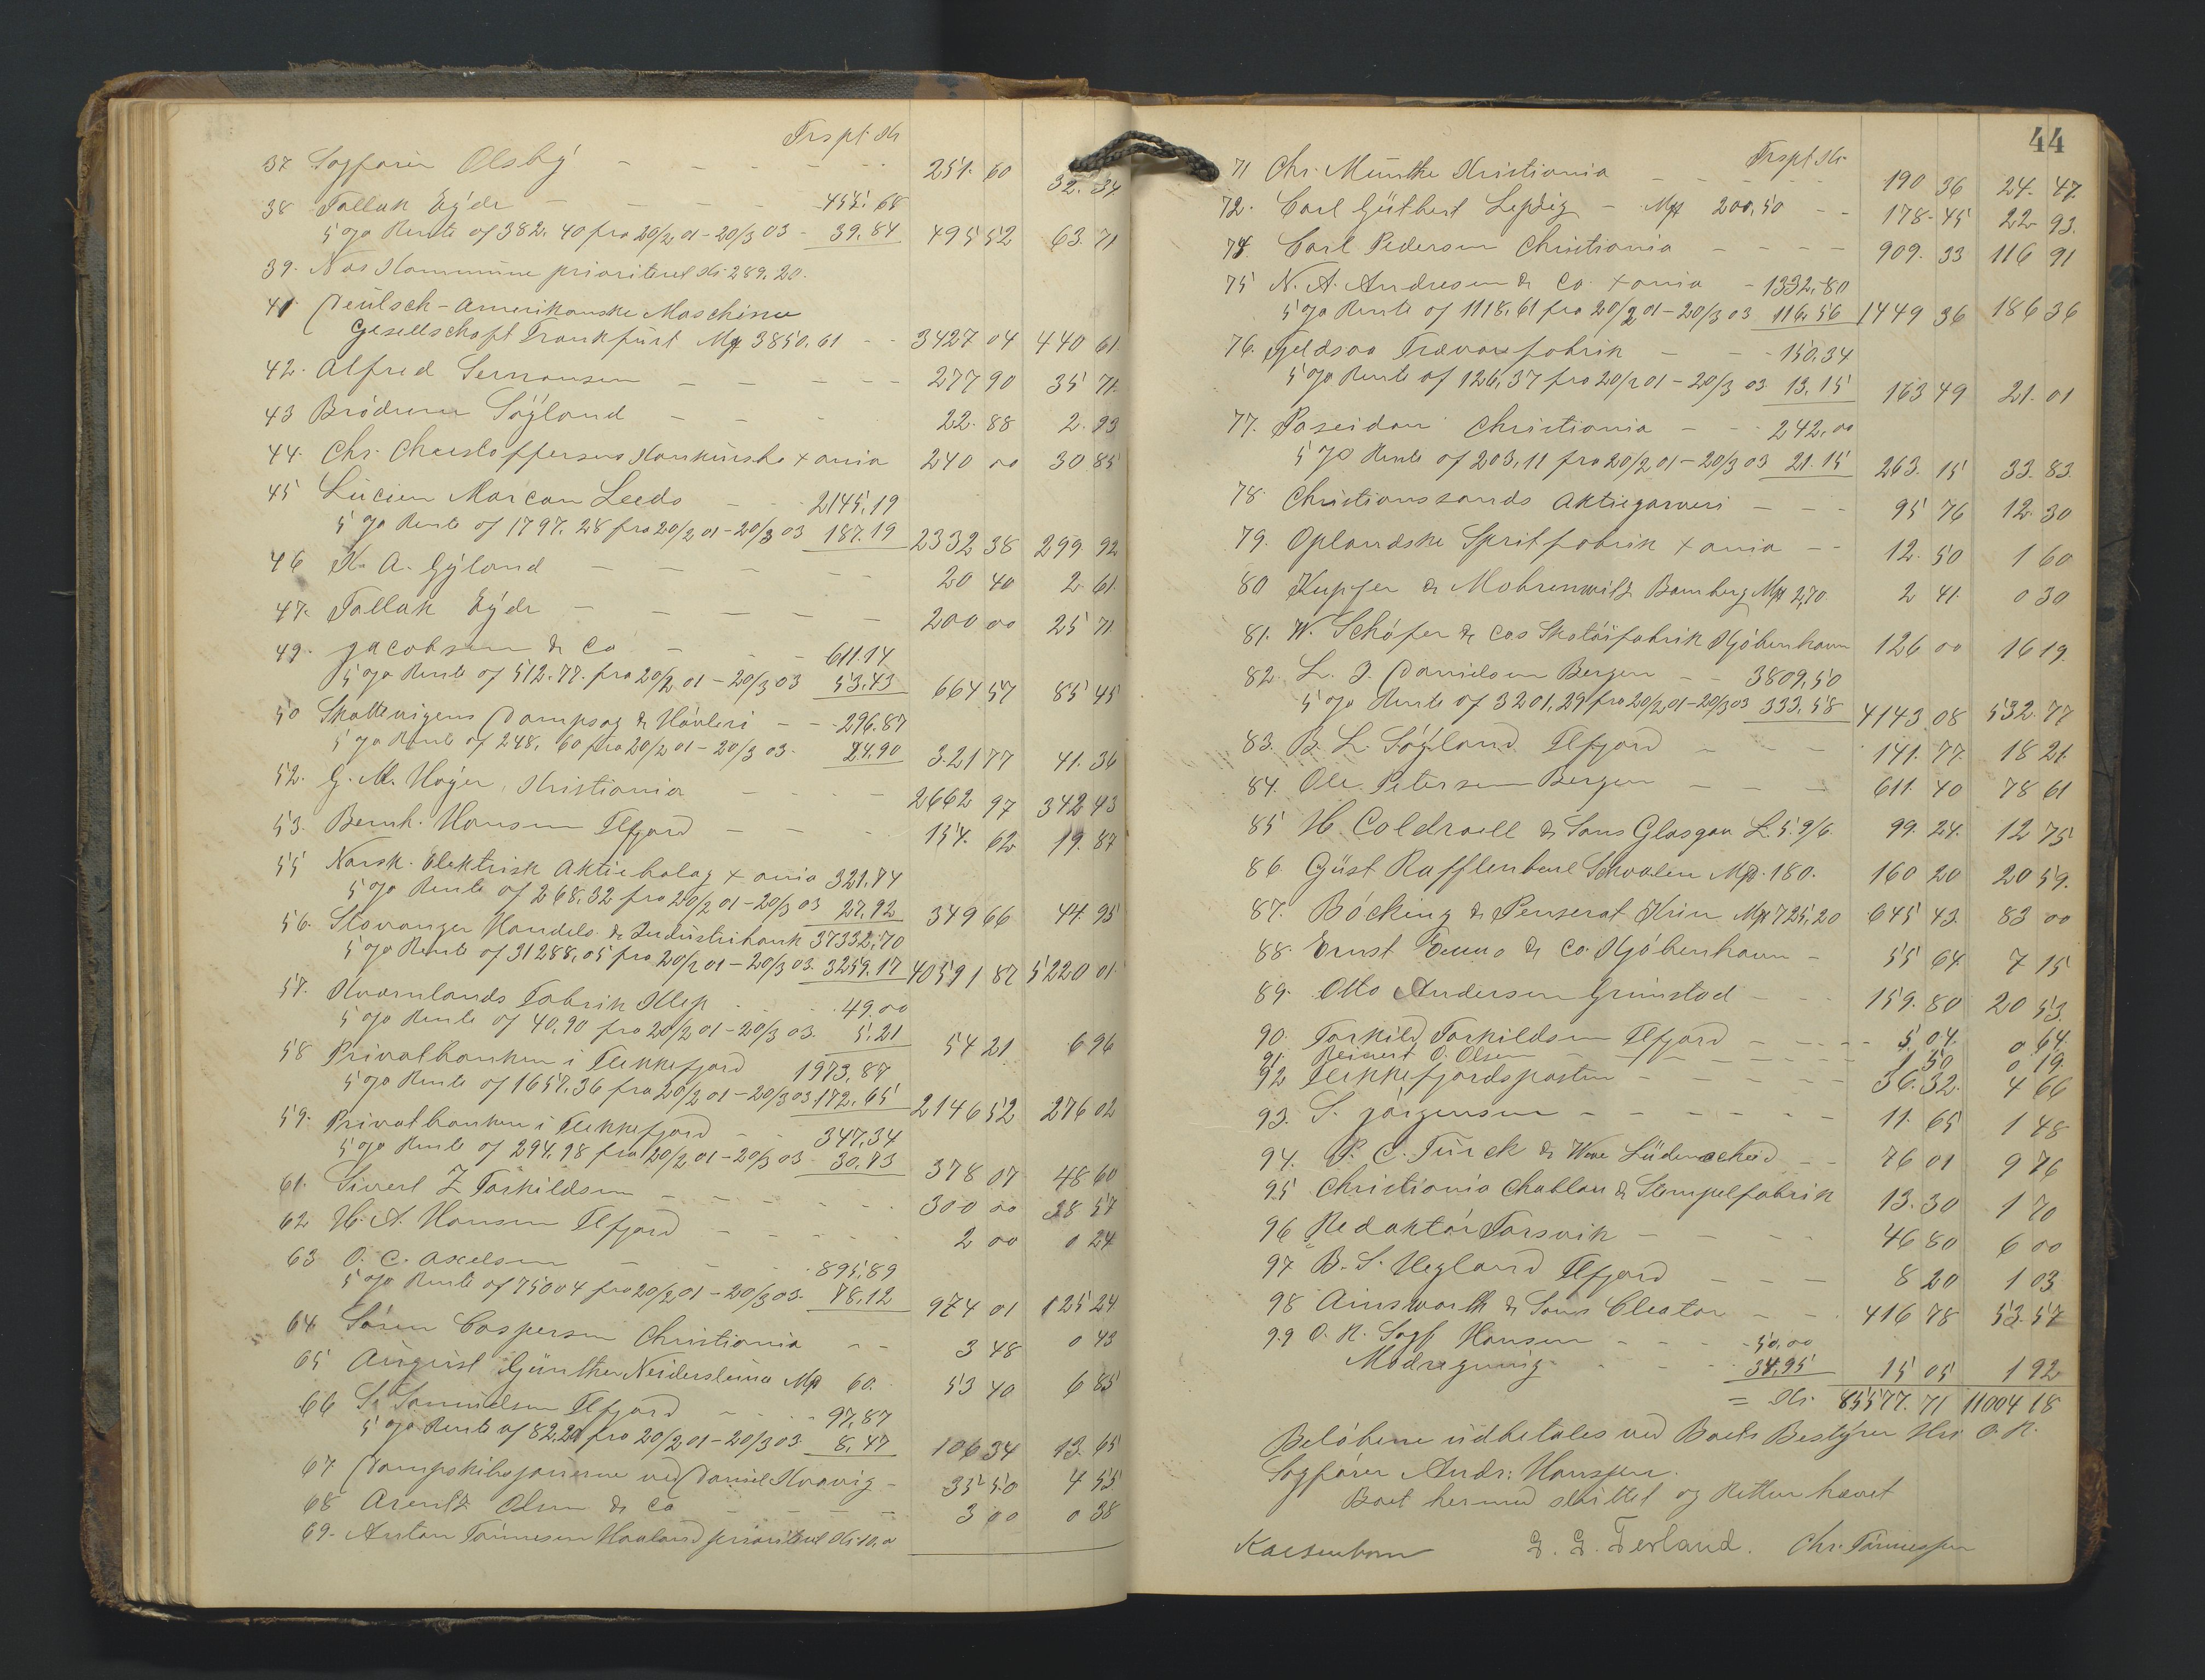 Trspt. Kr
37 Sagfører Olsby - - - - 251. 60 32. 34
38 Tallak Eyde - - - 455. 68
5 % Rente af 382. 40 fra 20/2 01 - 20/3 03 - 39. 84 495 52 63. 71
39. Næs Kommune prioriteret Kr 289. 20.
41 Deutsch-Amerikanske Maschine
Gesellschaft Frankfurt Mk 3850. 61 - - 3427 04 440 61
42. Alfred Sernausen - - - - 277 90 35 71.
43 Brødrene Søyland - - - 22. 88 2. 93
44. Chr. Christoffersens Konkursbo Xania 240 00 30 85
45 Lucien Marcan Leeds - - 2145,19
5 % Rente af 1797. 28 fra 20/2 01 - 20/3 03 187.19 2332 38 299. 92
46 K. A. Gyland - - - - 20 40 2. 61.
47. Tallak Eyde - - - - 200 00 25 71
49. Jacobsen & Co - - 611.14
5 % Rente af 512. 77. fra 20/2 01 - 20/3 03 53,43 664 57 85 45
50 Skattevigens Dampsag & Høvleri - - 296.87
5 % Rente af 248, 60 fra 20/2 01 - 20/3 03. 24,90 321 77 41. 36
52. G. M. Høyer, Kristiania - - - 2662 97 342 43
53. Bernh. Hansen Flfjord - - - 154. 62 19. 87
55 Norsk. Elektrisk Aktiebolag Xania 321,74
5 % Rente af 268,32 fra 20/2 01 - 20/3 03 27,92 349 66 44. 95
56. Stavanger Handels & Industribank 37332,70
5 % Rente af 31288,05 fra 20/2 01 - 20/3 03. 3259.17 40591 87 5220 01.
57. Kværnlands Fabrik Klep - - 49.00
5 % Rente af 40,90 fra 20/2 01 - 20/3 03. 5,21 54 21 6 96
58 Privatbanken i Flekkefjord 1973,87
5 % Rente af 1657,36 fra 20/2 01 - 20/3 03 172,65 2146 52 276 02
59. Privatbanken i Flekkefjord - - 347,34
5 % Rente af 294,98 fra 20/2 01 - 20/3 03 30,73 378 07 48 60
61. Sivert Z Torkildsen - - - - 300 00 38 57
62 H. A. Hansen Flfjord - - - - 2 00 0 24
63 O. C. Axelsen - - - 895,89
5 % Rente af 750 04 fra 20/2 01 - 20/3 03. 78,12 974 01 125 24
64 Søren Caspersen Christiania - - 3 48 0 43
65 August Günther Mk 60. 53 40 6 85
66 S. Samuelsen Flfjord - - - 97,87
5 % Rente af 82,20 fra 20/2 01 - 20/3 03. 8,47 106 34 13. 65
67 Dampskibsjoierne ved Daniel Kvavig - 35 50 4 55
68 Arentz Olsen & Co - - - - 3 00 0 38
69. Anton Tønnesen Haaland prioriteret Kr 10,00
44
Trspt. Kr
71 Chr. Munthe Kristiania - - - - 190 36 24. 47.
72. Carl Gütbert Lepzig - Mk 200,50 - - 178. 45 22. 93.
74. Carl Pedersen Christiania - - - - 909. 33 116 91
75 N. A. Andresen & Co. Xania - 1332,80
5 % Rente af 1118,61 fra 20/2 01 - 20/3 03 116,56 1449 36 186 36
76. Fjeldsaa Trævarefabrik - - - 150.34
5 % Rente af 126,37 fra 20/2 01 - 20/3 03 13,15 163 49 21. 01
77. Poseidon Christiania - - 242,00
5 % Rente af 203,11 fra 20/2 01 - 20/3 03 21.15 263. 15 33. 83.
78. Christianssands Aktiegarveri - - - 95 76 12. 30
79. Oplandske Spritfabrik Xania - - 12. 50 1 60
80 Kupfer & Mohrenwitz Bamberg Mk 2,70. 2 41. 0 30
81. W. Schøfer & Cos Skotøifabrik Kjøbenhavn 126 00 16 19.
82. L. J. Danielsen Bergen - - 3809,50
5 % Rente af 3201,29 fra 20/2 01 - 20/3 03 333,58 4143 08 532. 77
83. B. L. Søyland Flfjord - - - 141. 77. 18 21.
84. Ole Petersen Bergen - - - 611. 40 78 61
85 H. Coldroell & Sons Glasgow L. 5. 9/6. 99. 24. 12 75
86. Güst Rafflenbeul Schvalen Mk. 180. 160 20 20 59.
87. Böcking & Penserot Mk 725,20 645 43. 83 00
88. Ernst & Co. Kjøbenhavn - 55 64. 7 15
89. Otto Andersen Grimstad - - - 159. 80 20 53.
90. Torkild Torkildsen Flfjord - - - - 5 04. 0 64.
91. Reinert O. Olsen - - - - 1 50 0 19.
92 Flekkefjordsposten - - - - 36. 32. 4 66
93. S. Jørgensen - - - - - 11. 65 1 48
94. P. C. Turck & Wwe Lüdenscheid - - 76 01 9 76
95 Christiania Chablon & Stempelfabrik 13. 30 1 70
96 Redaktør Torsvik - - - - 46 80 6 00
97 B. S. Hegland Flfjord - - - 8 20 1 03
98 Ainsworth & Sons Cleator - - - 416 78 53. 57
99 O. R. Sagf Hansen - - - 50,00
Modregning - - - - 34,95 15 05 1 92
= Kr. 85577. 71 11004 18
Beløbene udbetales ved Boets Bestyrer Hr. O. R.
Sagfører Andr: Hanssen.
Boet hermed sluttet og Retten hævet
G. G. Terland. Chr. Tønnessen